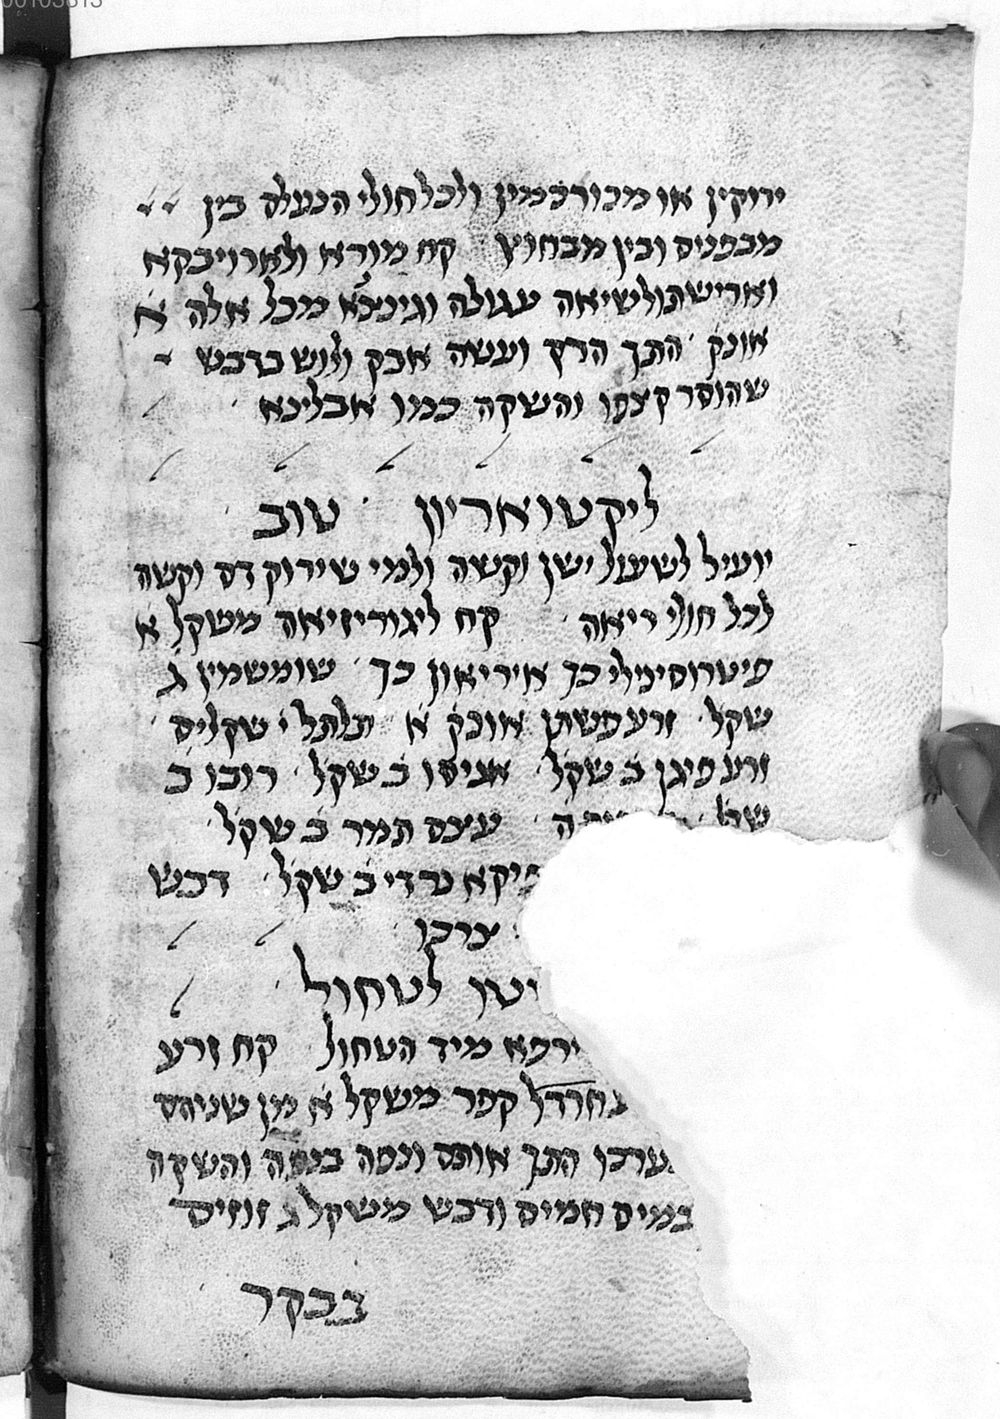 ירוקין או מכורכמין ולכל חולי הנעלם בין
מבפנים ובין מבחוץ קח מורא ולארויבקא
ואריש תולשיאה עגולה וגינצא מכל אלה א
אונק התך הדק ועשה אבק ולוש בדבש
שהוסר קצפו והשקה כמו אבלינא
ליקטואריון טוב
יועיל לשעול ישן וקשה ולמי שירוק דם וקשה
לכל חולי ריאה קח ליגוריזיאה משקל א
פיטרוסימלי כך איריאון כך שומשמין ג
שקל זרע פשתן אונק א תלתל י שקלים
זרע פיגן ב שקל אניסו ב שקל רובו ב
שקל עצם תמר ב שקל
פיקא נרדי ב שקל דבש
צרכו
לטחול
ירפא מיד הטחול קח זרע
חרדל קפר משקל א מן שניהם
ערכו התך אותם ונפה בנפה והשקה
במים חמים ודבש משקל ג זוזים
בבקר